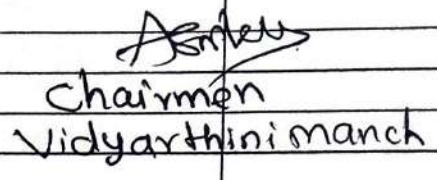 Chairmen
Vidyarthini manch